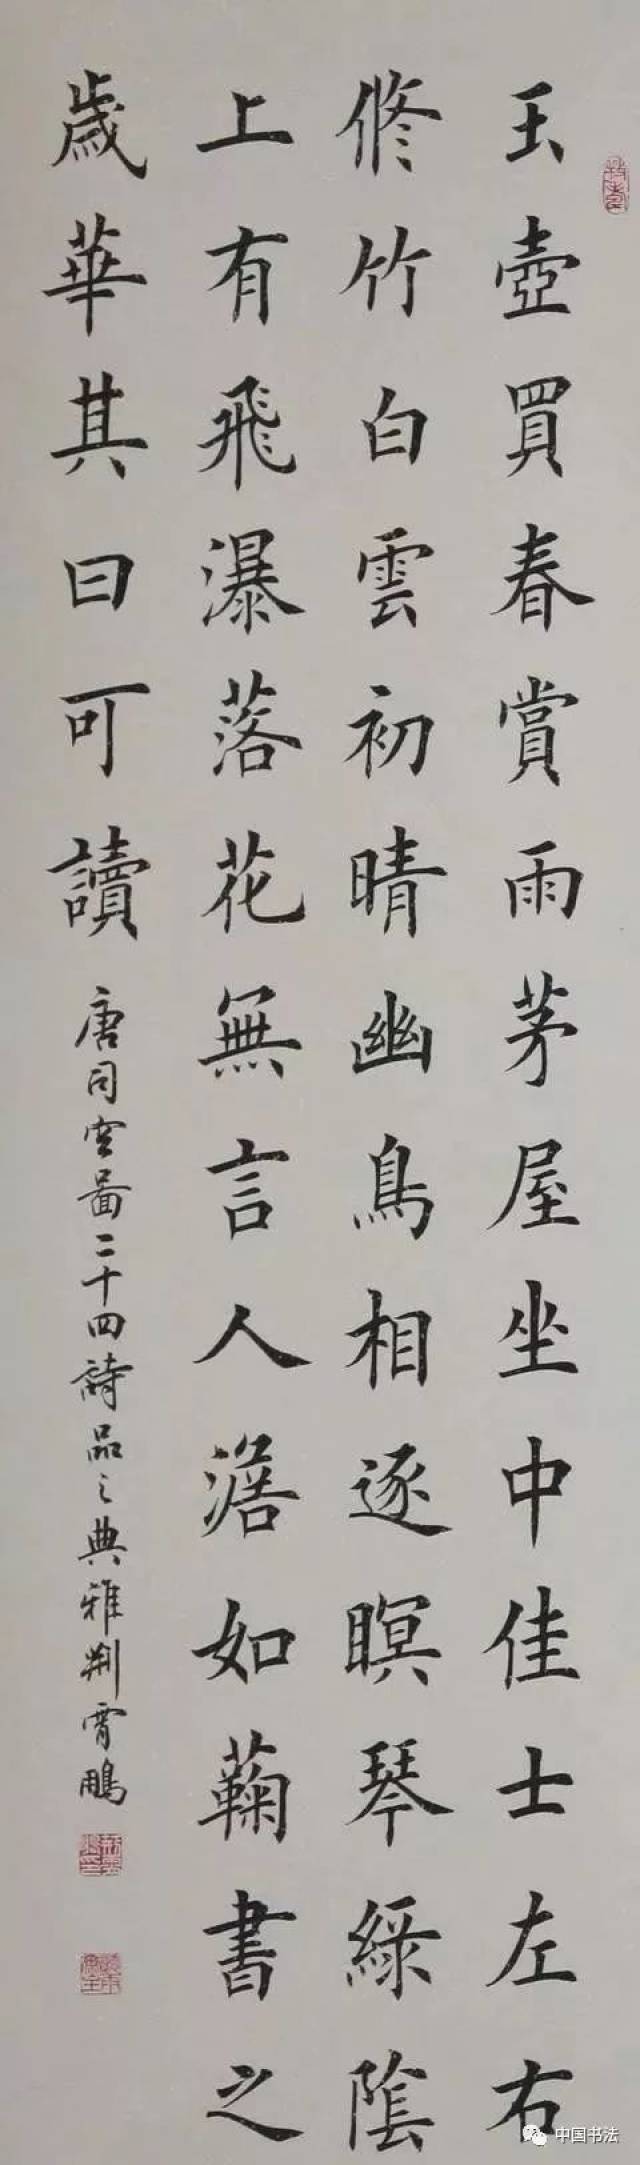 玉壺買春賞雨茅屋坐中佳士左右
修竹白雲初晴幽鳥相逐瞑琴綠陰
上有飛瀑落花無言人澹如蘜書之
歲華其曰可讀
唐司空啚二十四詩品之典雅荆霄鵬
中国书法